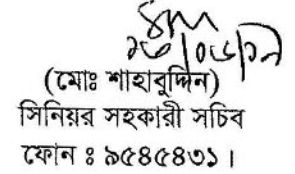 ১৬/০৬/১৭
(মোঃ শাহাবুদ্দিন)
সিনিয়র সহকারী সচিব
ফোন ঃ ৯৫৪৫৪৩১।